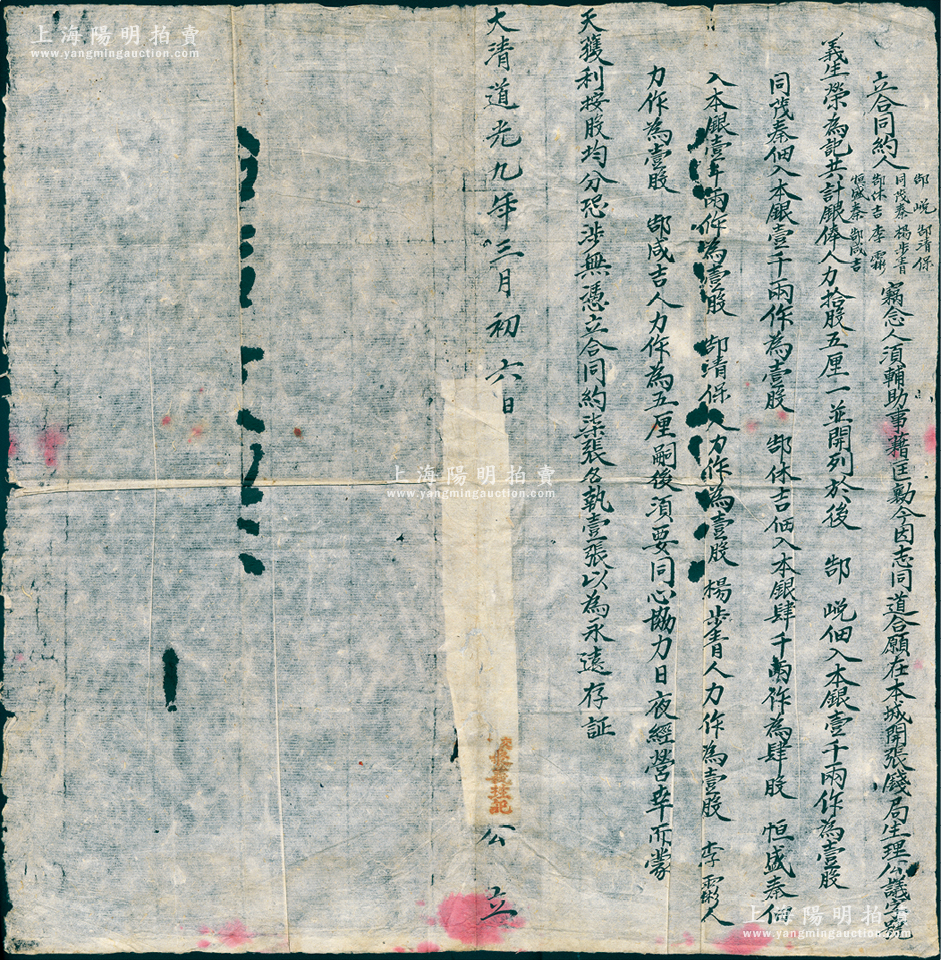 立合同約人
郜㟋 郜清保
同茂泰 楊步青
郜休吉 李霦
恒盛泰 郜咸吉
竊念人須輔助事藉匡勷今因志同道合願在本城開張錢局生理公議字號
義生榮為記共計銀俸人力拾股五厘一並開列於後 郜 㟋佃入本銀壹千兩作為壹股
同茂泰佃入本銀壹千兩作為壹股 郜休吉佃入本銀肆千兩作為肆股 恒盛泰佃
入本銀壹千兩作為壹股 郜清保人力作為壹股 楊步青人力作為壹股 李霦人
力作為壹股 郜咸吉人力作為五厘嗣後須要同心協力日夜經營幸而蒙
天獲利按股均分恐涉無憑立合同約柒張各執壹張以為永遠存証
大清道光九年三月初六日 公立
上海陽明拍賣
www.yangmingauction.com
上海陽明拍賣
www.yangmingauction.com
上海陽明拍賣
www.yangmingauction.com